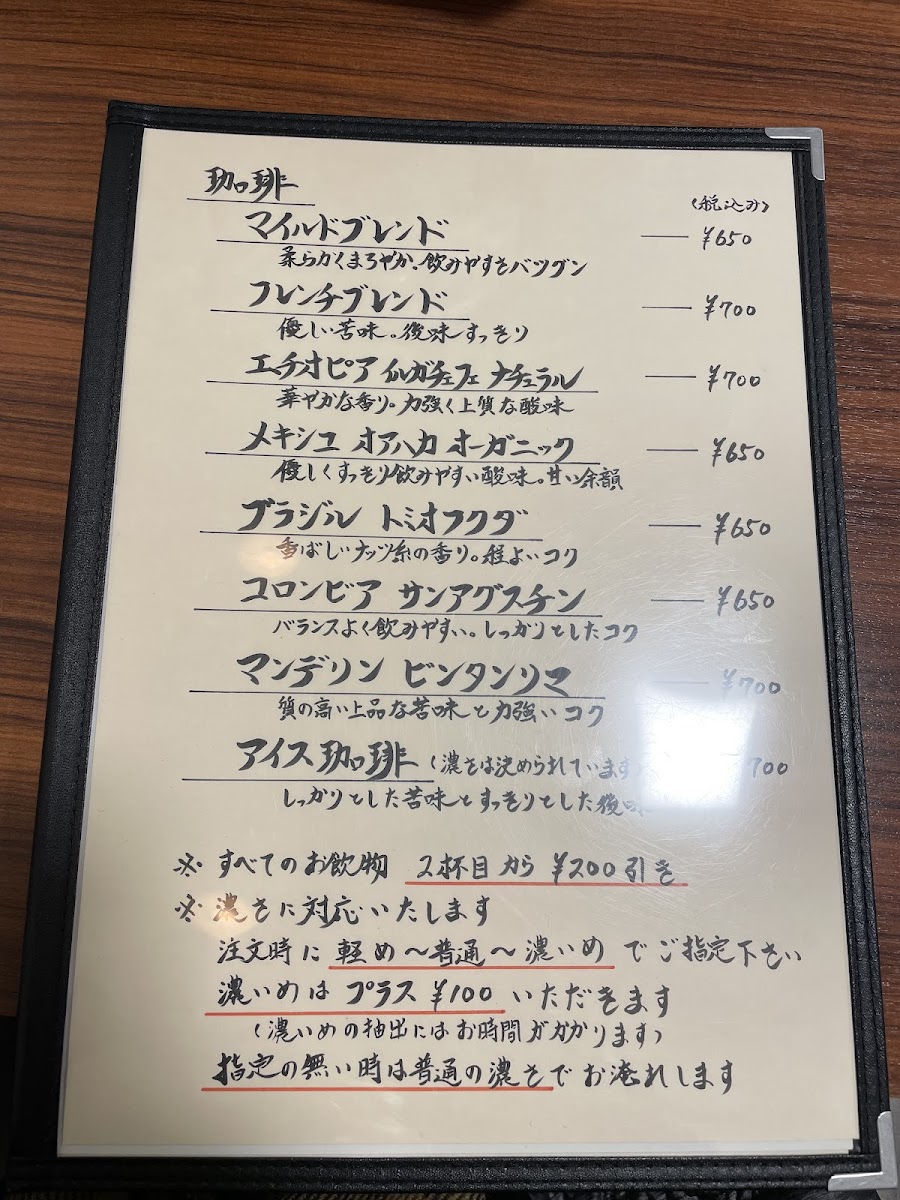 珈琲
(税込み)
マイルドブレンド ¥650
柔らかくまろやか、飲みやすさバツグン
フレンチブレンド ¥700
優しい苦味。後味すっきり
エチオピア イルガチェフェ ナチュラル ¥700
華やかな香り。力強く上質な酸味
メキシコ オアハカ オーガニック ¥650
優しくすっきり飲みやすい酸味。甘い余韻
ブラジル トミオフクダ ¥650
香ばしいナッツ系の香り。程よいコク
コロンビア サンアグスチン ¥650
バランスよく飲みやすい。しっかりとしたコク
マンデリン ビンタンリマ ¥700
質の高い上品な苦味と力強いコク
アイス珈琲 (濃さは決められています) 700
しっかりとした苦味とすっきりとした後味
※ すべてのお飲物 2杯目から ¥200引き
※ 濃さに対応いたします
注文時に 軽め〜普通〜濃いめ でご指定下さい
濃いめは プラス ¥100 いただきます
(濃いめの抽出にはお時間がかかります)
指定の無い時は普通の濃さでお淹れします